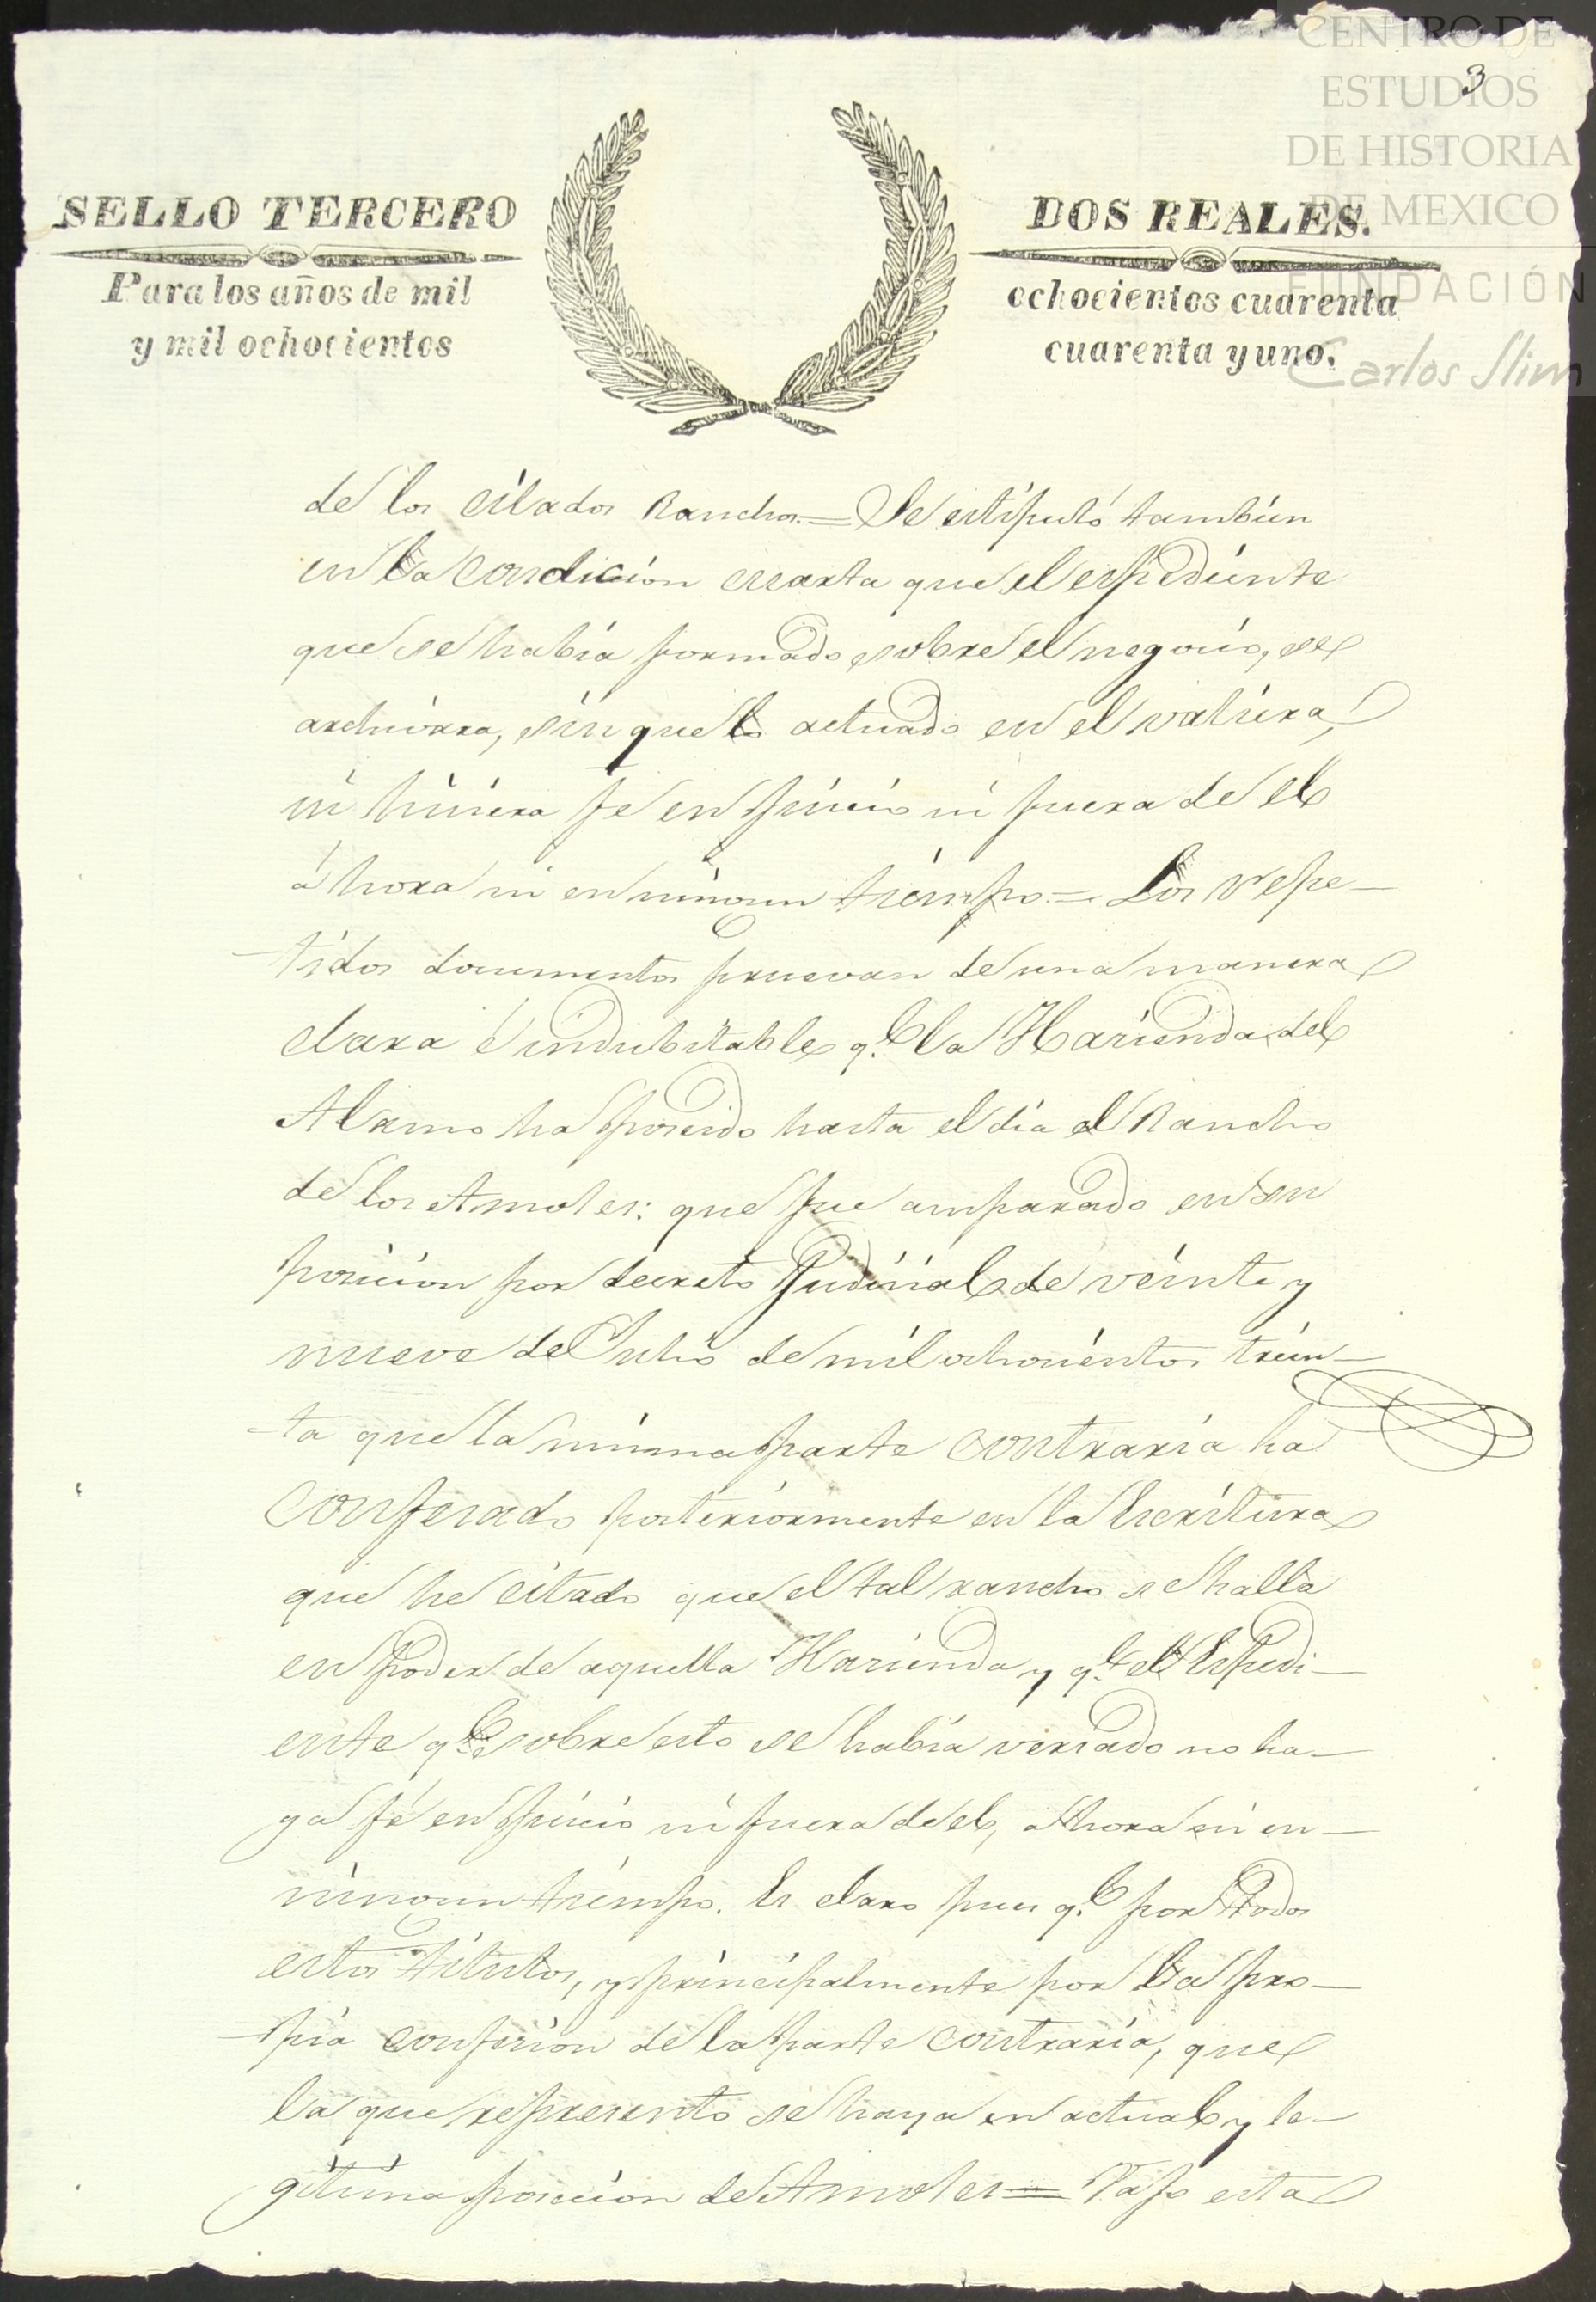 CENTRO DE
ESTUDIOS
DE HISTORIA
DE MEXICO
FUNDACIÓN
Carlos Slim
3
SELLO TERCERO
DOS REALES.
Para los años de mil
ochocientos cuarenta
y mil ochocientos
cuarenta y uno.
de los citados Ranchos.= Se estipuló tambien
en la condicion cuarta que el espediente
que se habia formado sobre el negocio, se
archivara, sin que lo actuado en el valiera,
ni hiciera fe en juicio ni fuera de el
áhora ni en ningun tiempo.= Los repe-
-tidos documentos pruevan de una manera
clara é indubitable q.e la Hacienda del
Alamo ha poseido hasta el dia el Rancho
de los Amoles: que fue amparado en su
posicion por decreto Judicial de veinte y
nueve de Julio de mil ochocientos trein-
-ta que la misma parte contraria ha
confesado posteriormente en la Escritura
que he citado que el tal rancho se halla
en poder de aquella Hacienda y q.e el Espedi-
ente q.e sobre esto se habia versado no ha-
ga fé en juicio ni fuera de el, ahora ni en-
ningun tiempo. Es claro pues q.e por todos
estos titulos, y principalmente por la pro-
-pia confesion de la parte contraria, que
la que represento se haya en actual y le-
gitima posecion de Amoles= Bajo esta